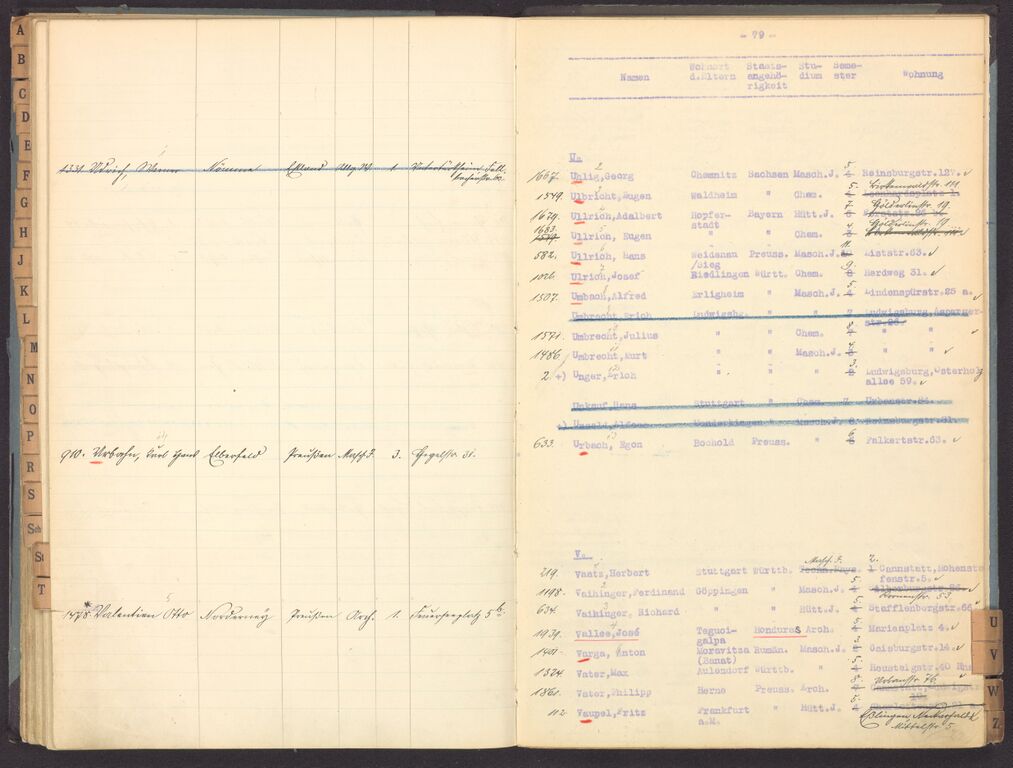 A
B
C
D
E
F
G
H
J
K
L
M
N
O
P
R
S
Sch
St
T
1331. Udrich, Werner Nömme Estland Allg. W. 1.
910. Urbahn, Carl Hans Elberfeld Preußen Masch. J. 3. Hegelstr. 31.
1478 Valentien Otto Norderney Preußen Arch. 1. Feuerseeplatz 5
- 79 -
Namen Wohnort d.Eltern Staatsangehörigkeit Studium Semester Wohnung
U.
1667. Uhlig,Georg Chemnitz Sachsen Masch.J. 5. Reinsburgstr.127.
1549. Ulbricht,Eugen Waldheim " Chem. 5. Birkenwaldstr. 111
1679. Ullrich,Adalbert Hopfer- Bayern Hütt.J. 7. Hölderlinstr. 19.
stadt
1683. Ullrich, Eugen " Chem. 4. Hölderlinstr. 19
582. Ullrich, Hans Weidenau Preuss. Masch.J. 11. Liststr.63.
/Sieg
1026. Ulrich,Josef Riedlingen Württ. Chem. 9. Herdweg 31.
1507. Umbach,Alfred Erligheim " Masch.J. 5. Lindenspürstr.25 a.
Umbrecht,Erich Ludwigsbg. " " 7 Ludwigsburg,Asperger-
str.26.
1571. Umbrecht,Julius " " Chem. 8. " "
1486 Umbrecht,Kurt " " Masch.J. 4. " "
2. +) Unger,Erich " " " 3. Ludwigsburg,Osterholz
allee 59.
Unkauf,Hans Stuttgart " Chem. 7 Urbanstr.84.
633. Urbach, Egon Bocholt Preuss. " 6. Falkertstr.63.
V.
Masch. J. 2.
219. Vaatz,Herbert Stuttgart Württb. 1 Cannstatt,Hohenstau-
fenstr.5.
1148. Vaihinger,Ferdinand Göppingen " Masch.J. 5.
634. Vaihinger, Richard " " Hütt.J. 5. Stafflenbergstr.66
1939. Vallee,José Teguci- Honduras Arch. Marienplatz 4.
galpa
1401. Varga, Anton Moravitza Rumän. Masch.J. Gaisburgstr.14.
(Banat)
1324. Vater,Max Aulendorf Württb. " Heusteigstr.40
1861. Vater,Philipp Herne Preuss. Arch. 8. Urbanstr. 76
112 Vaupel,Fritz Frankfurt " Hütt.J. 5.
a.M.
Eßlingen
Mittelstr. 5.
U
V
W
Z